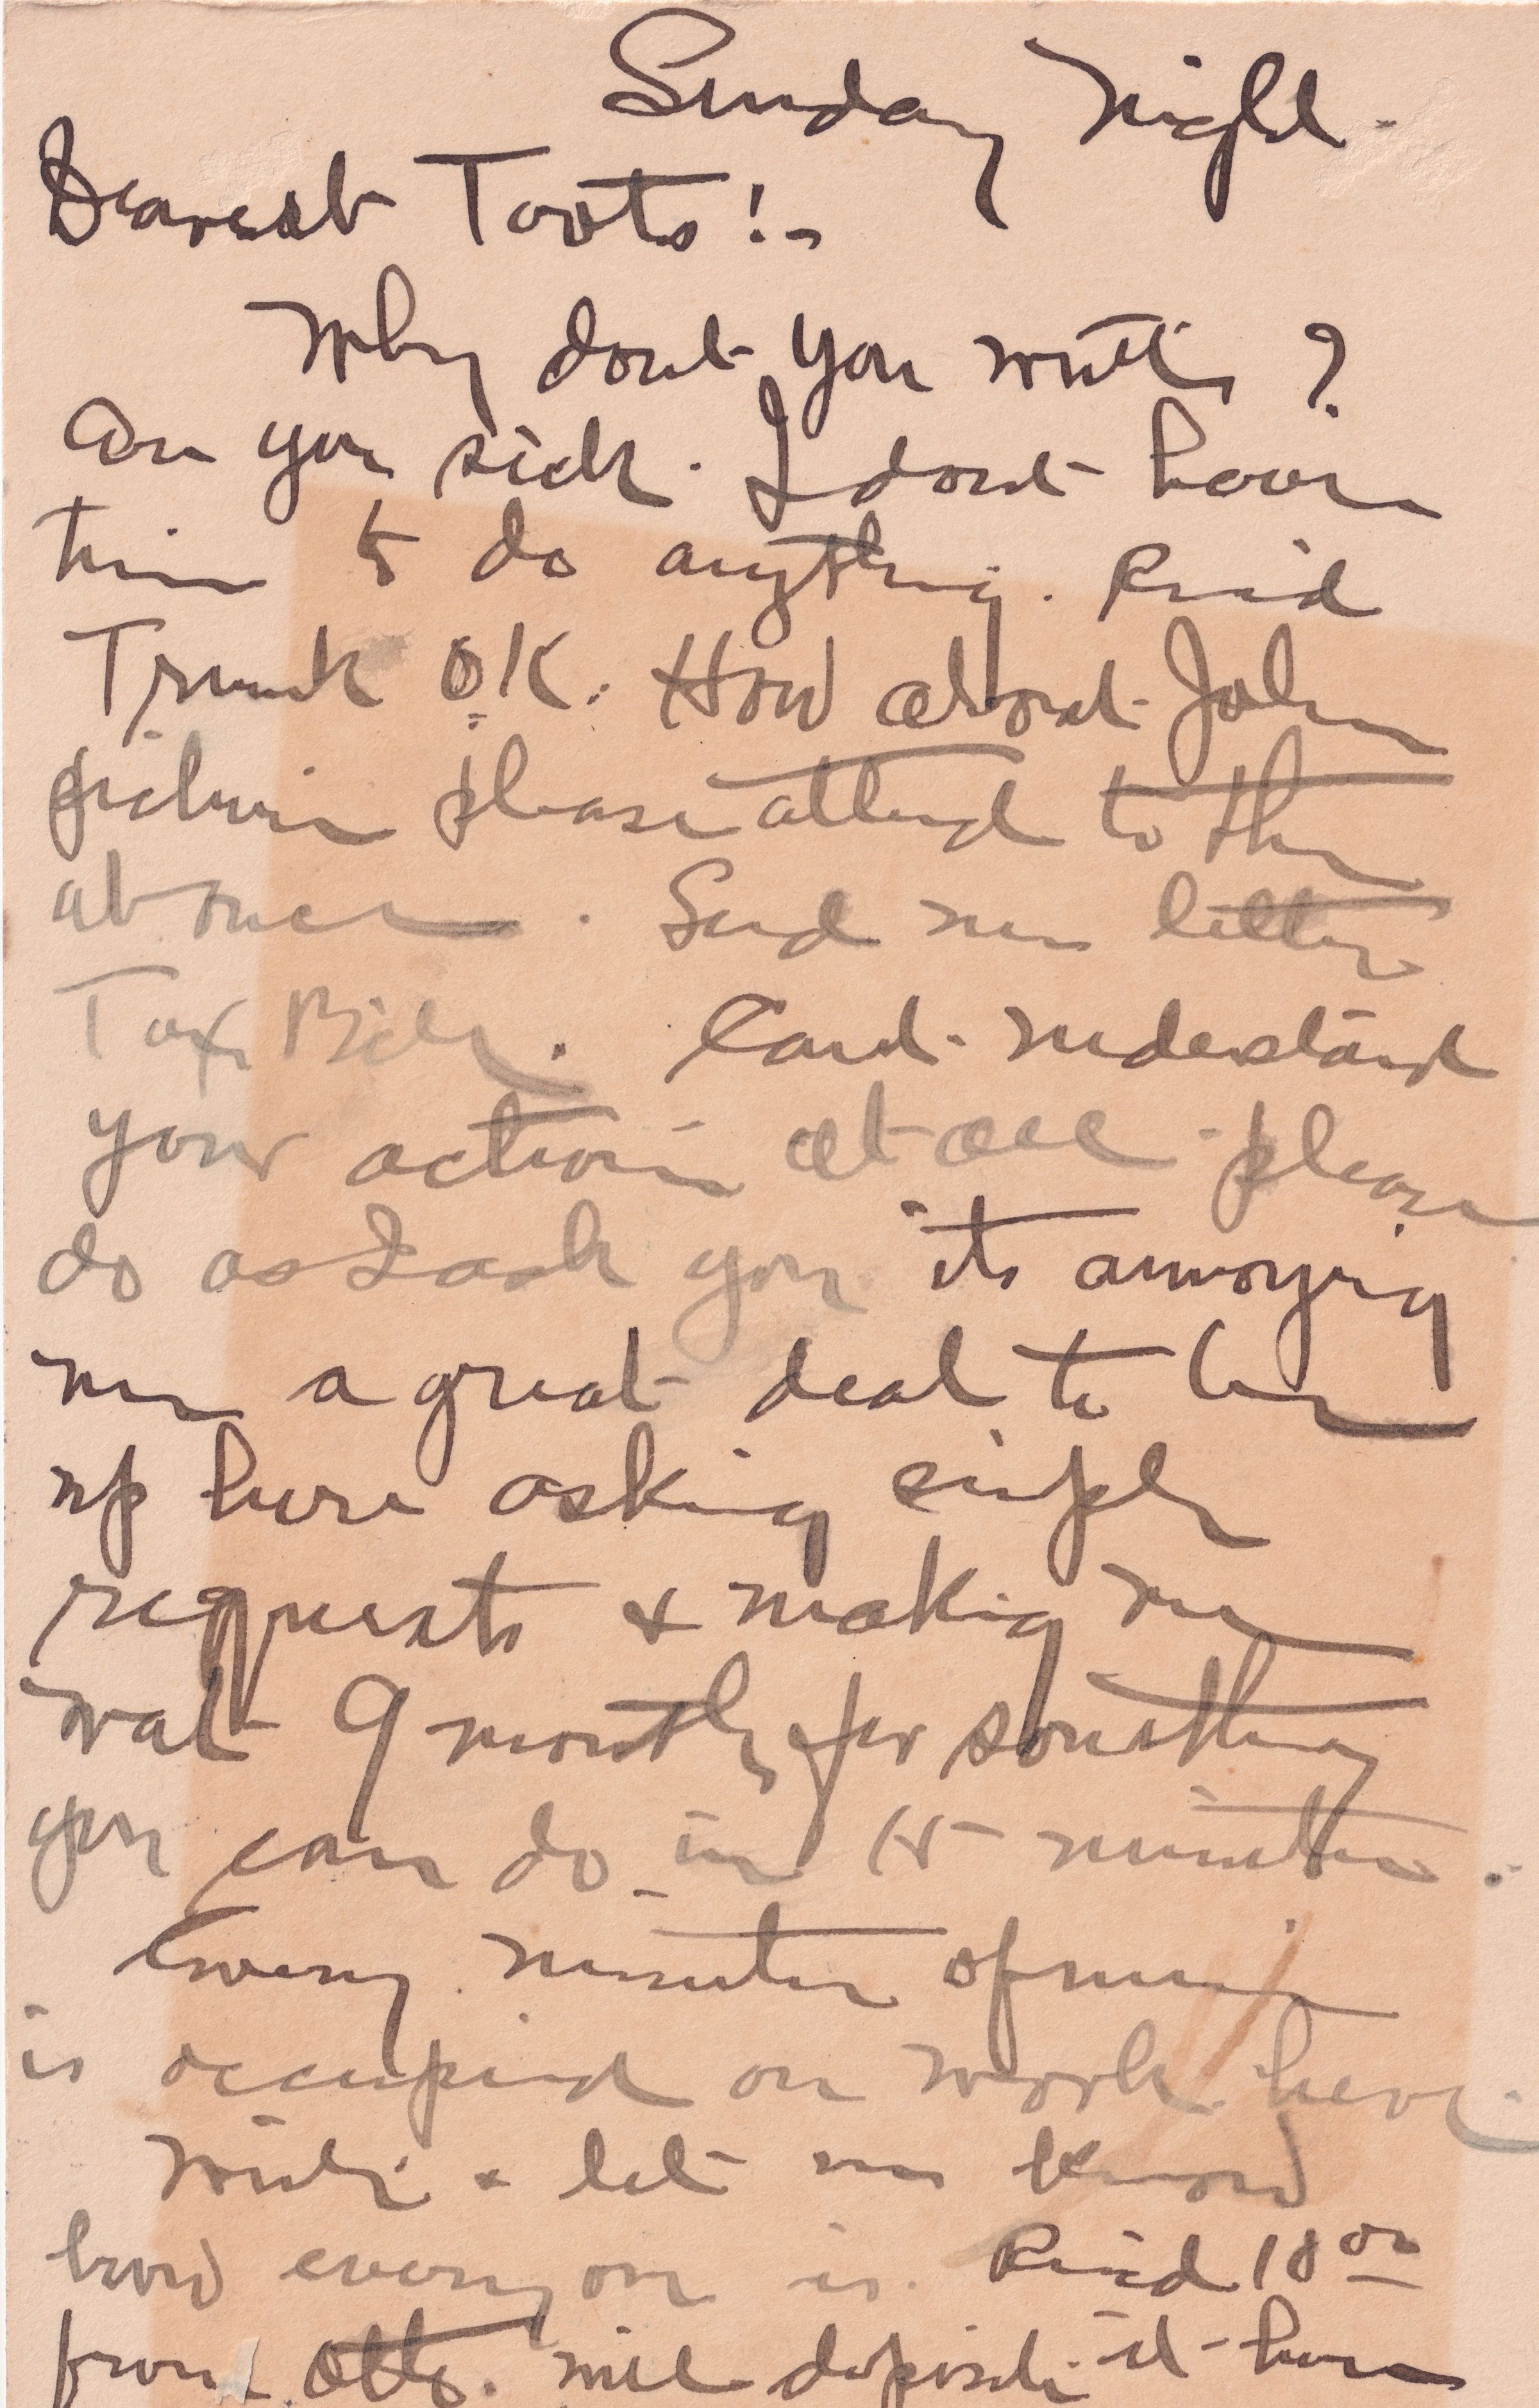 Sunday Night -
Dearest Toots! -
Why dont you write ?
Are you sick. I dont have
time to do anything. Rec'd
Trunk OK. How about John
picture please attend to this
at once. Send me letter
Tax Bill. Cant understand
your actions at all - please
do as I ask you its annoying
me a great deal to be
up here asking simple
requests & making me
wait 9 months for something
you can do in 15 minutes.
Every minute of mine
is occupied on work here.
Write & let me know
how everyone is. Rec'd 18 00
from Otto. will deposit it here